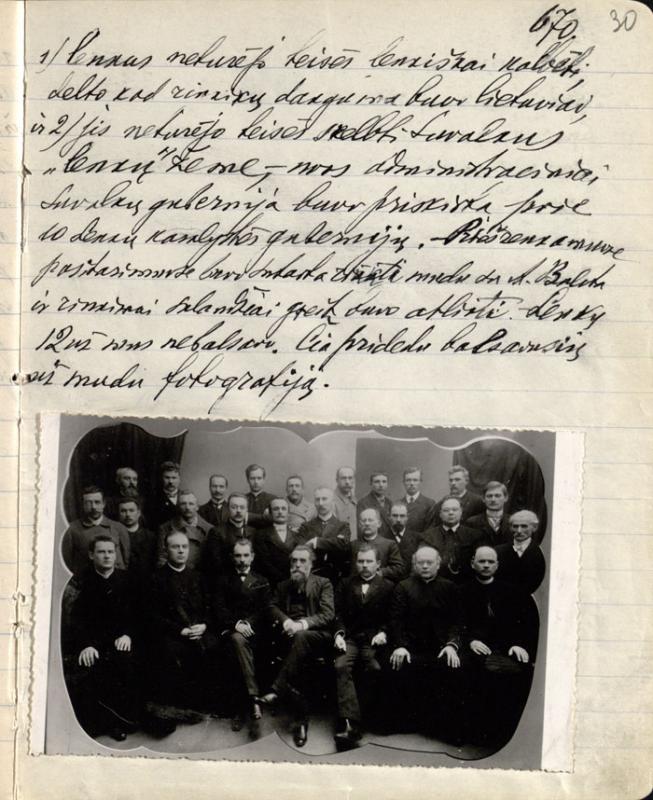 670. 30
1) lenkas neturėjo teisės lenkiškai kalbėti,
delto kad rinkikų dauguma buvo lietuviai,
ir 2) jis neturėjo teisės skelbti Suvalkus
„lenkų" žeme, – nors administraciniai
Suvalkų gubernija buvo priskirta prie
10 lenkų karalystės gubernijų. –
buvo nutarta rinkti mudu su A. Bulota
ir rinkimai sklandžiai greit buvo atlikti – lenkų
12 už mus nebalsavo. Čia pridedu balsavusių
už mudu fotografiją.